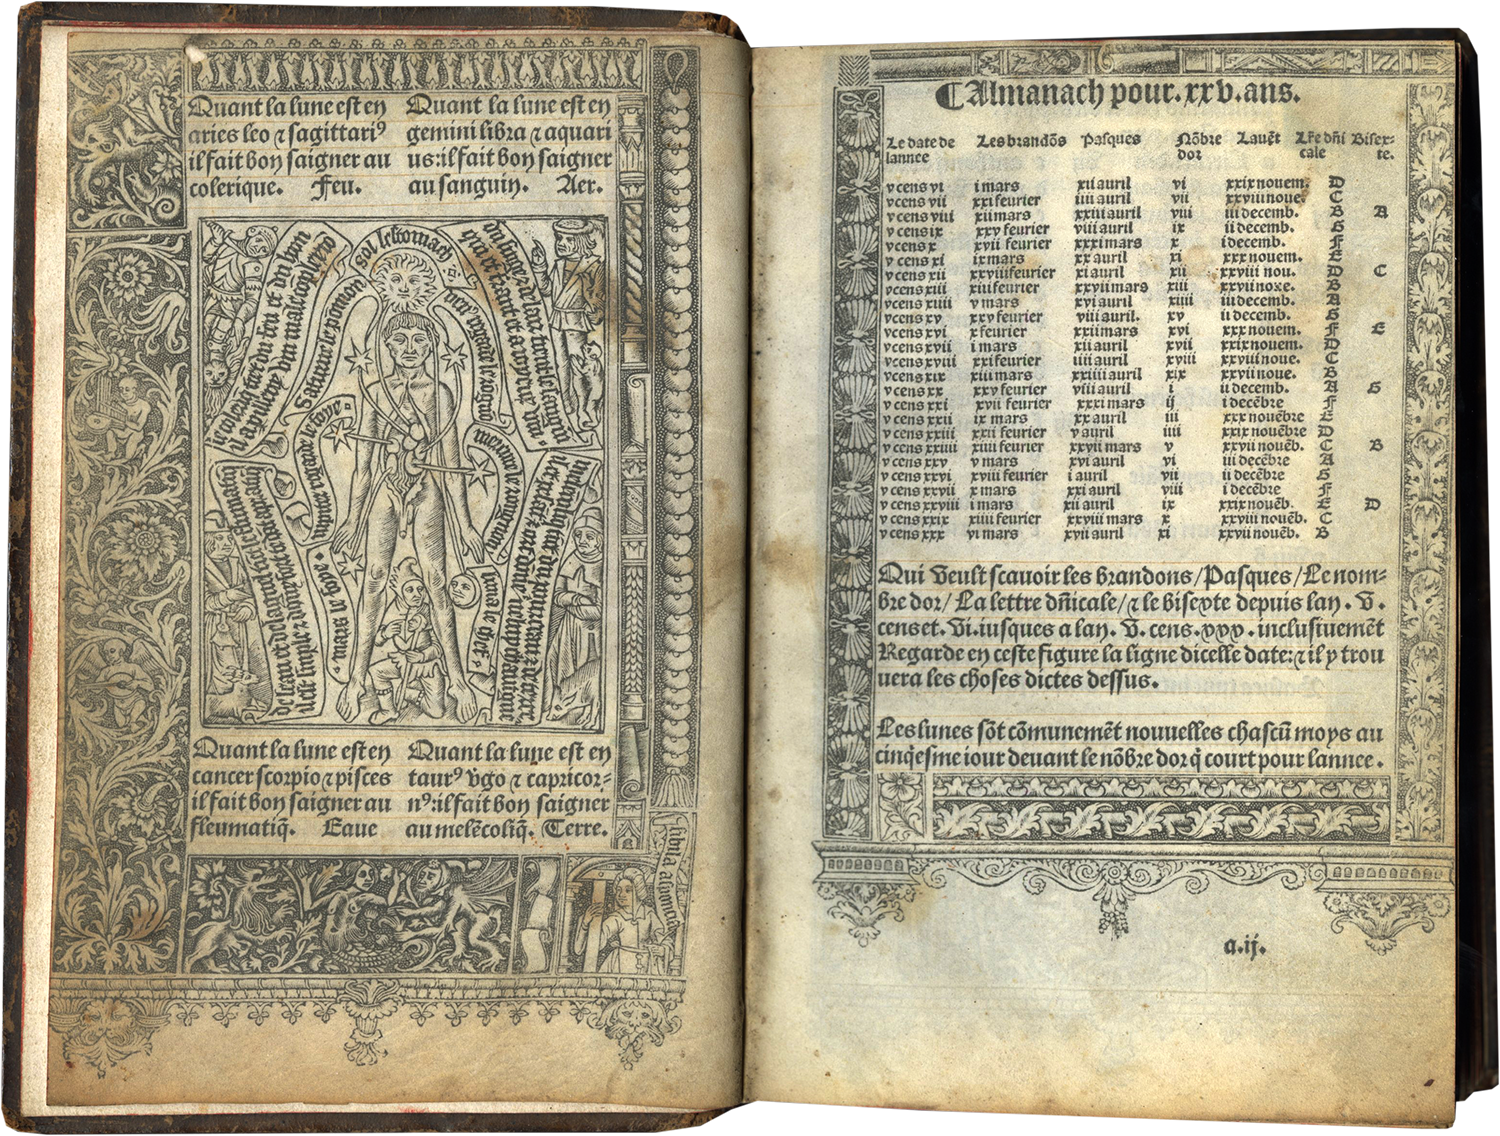 Quant la lune est en
aries leo ⁊ sagittariꝰ
il fait bon saigner au
colerique. Feu.
Quant la lune est en
gemini libra ⁊ aquari
us: il fait bon saigner
au sanguin. Aer.
sol lestomach
Saturne le pomon
iupiter regarde le foye
mars la
luna le chef
Quant la lune est en
cancer scorpio ⁊ pisces
il fait bon saigner au
fleumatiq̄. Eaue
Quant la lune est en
taurꝰ v̄go ⁊ capricor-
nꝰ: il fait bon saigner
au melēcoliq̄. Terre.
sibila
¶ Almanach pour. xxv. ans.
Le date de lannce Les brandōs Pasques Nōbre dor Lauēt Lr̄e dn̄icale Bisexte.
v cens vi i mars xii auril vi xxix nouem. D
v cens vii xxi feurier iiii auril vii xxviii noue. C
v cens viii xii mars xxiii auril viii iii decemb. B A
v cens ix xxv feurier viii auril ix ii decemb. G
v cens x xvii feurier xxxi mars x i decemb. F
v cens xi ix mars xx auril xi xxx nouem. E
v cens xii xxviii feurier xi auril xii xxviii nou. D C
v cens xiii xiii feurier xxvii mars xiii xxvii noxe. B
v cens xiiii v mars xvi auril xiiii iii decemb. A
v cens xv xxv feurier viii auril. xv ii decemb. G
v cens xvi x feurier xxii mars xvi xxx nouem. F E
v cens xvii i mars xii auril xvii xxix nouem. D
v cens xviii xxi feurier iiii auril xviii xxviii noue. C
v cens xix xiii mars xxiiii auril xix xxvii noue. B
v cens xx xxv feurier viii auril i ii decemb. A G
v cens xxi xvii feurier xxxi mars ij i decēbre F
v cens xxii ix mars xx auril iii xxx nouēbre E
v cens xxiii xxii feurier v auril iiii xxix nouēbre D
v cens xxiiii xiiii feurier xxvii mars v xxvii nouēb. C B
v cens xxv v mars xvi auril vi iii decēbre A
v cens xxvi xviii feurier i auril vii ii decēbre G
v cens xxvii x mars xxi auril viii i decēbre F
v cens xxviii i mars xii auril ix xxix nouēb. E D
v cens xxix xiiii feurier xxviii mars x xxviii nouēb. C
v cens xxx vi mars xvii auril xi xxvii nouēb. B
Qui veult scauoir les brandons/Pasques/Le nom-
bre dor/La lettre dn̄icale/⁊ le bisexte depuis lan. V.
cens et. Vi. iusques a lan. V. cens. xxx. inclusiuemēt
Regarde en ceste figure la ligne dicelle date: ⁊ il y trou
uera les choses dictes dessus.
Les lunes sōt cōmunemēt nouuelles chascū moys au
cinq̄esme iour deuant le nōbre dor q̄ court pour lannee.
a. ij.